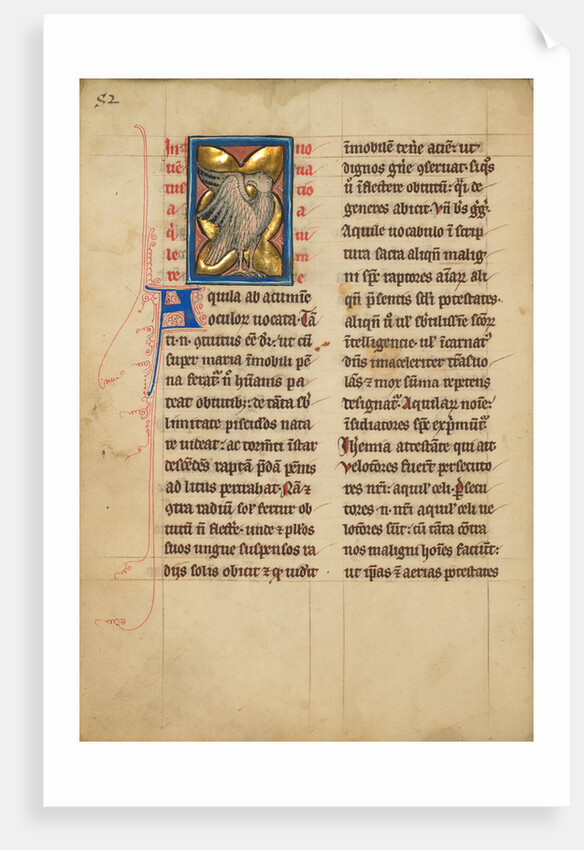 82
In no
uē ua
tus tio
a a
q̄ m
le
re e
Aquila ab acumīe
oculoꝝ uocata. Tā
ti. n. ꝯtuitus cē dr̄: ut cū
super maria īmobili pē
na feratᷣ. n̄ hūanis pa
teat obtutibꝫ: de tāta sb̓
limitate pisciculos nata
re uideat: ac tormēti īstar
descēdēs raptā p̄dā pēnis
ad litus pertrahat. Nā ⁊
ꝯtra radiū sol̓ fertur ob
tutū n̄ flecte̓. unde ⁊ pll̓os
suos ungue suspensos ra
dijs solis obicit ⁊ q͛ uid̓it
īmobilē tene̓ aciē: ut
dignos gn̓e ꝯseruat. siq̓s
u̓ īflectere obtutū: q̓i de
generes abicit. Vn̄ bs̄ gg̓.
Aquile uocabulo ī scrip
tura sacra aliqn̄ malig
ni sp̄c raptores aīaꝝ ali
qn̄ p̄sentis scl̓i potestates.
aliqn̄ u̓ ul̓ sb̓tilissīe scōꝝ
ītelligencie. ul̓ īcarnatᷣ
dn̄s īma celeriter trāsuo
lās ⁊ mox sūma repetens
designatᷣ. Aquilaꝝ noīe:
īsidiatores sp̄c exp̓mūtᷣ
Jhemia attestāte qui ait
Velociores fuerūt persecuto
res nr̄i: aquil̓ celi. P̄secu
tores. n. nr̄i aquil̓ celi ue
lociores sūt: cū tāta cōtra
nos maligni hoīes faciūt:
ut ip̄as ⁊ aerias potestates